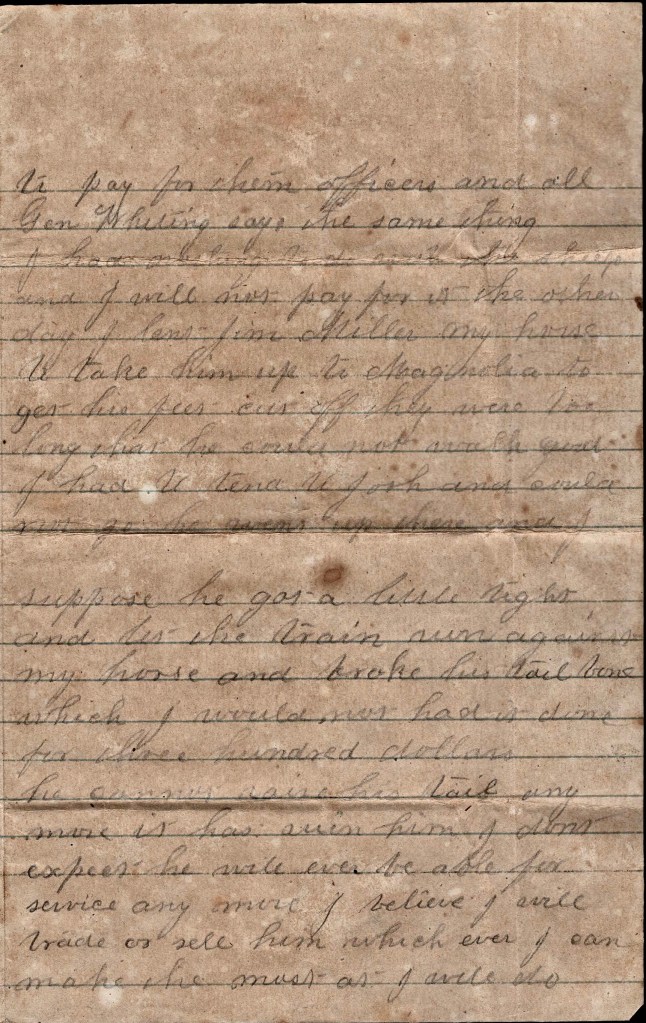 to pay for them officers and all
Gen Whiting says the same thing
I had nothing to do with the sheep
and I will not pay for it the other
day I lent Jim Miller my horse
to take him up to Magnolia to
get his feet cut off they were too
long that he could not walk good
I had to tend to Josh and could
not go he went up there and I
suppose he got a little tight
and let the train run against
my horse and broke his tail bone
which I would not had it done
for three hundred dollars
he cannot raise his tail any
more it has ruin him I dont
expect he will ever be able for
service any more I believe I will
trade or sell him which ever I can
make the most at I will do